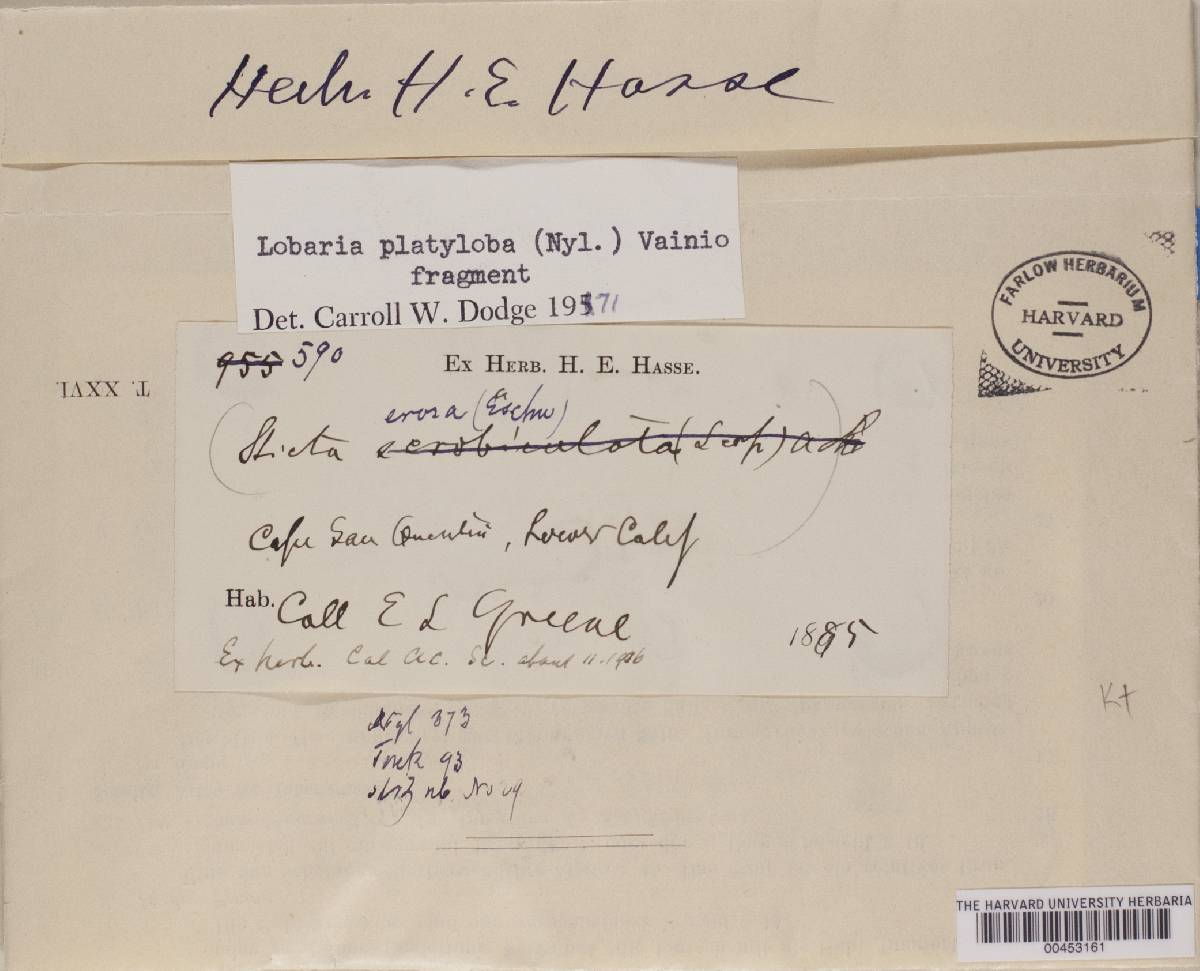 Herb. H. E. Hasse
Lobaria platyloba (Nyl.) Vainio
fragment
Det. Carroll W. Dodge 1971
FARLOW HERBARIUM
HARVARD
UNIVERSITY
955 590
Ex Herb. H. E. Hasse.
T. XXVI.
erosa (Eschw)
Sticta scrobiculata (Scop) Ach
Cape San Quentin, Lower Calif
Hab. Coll E L Greene
1885
Ex herb. Cal Ac. Sc. about 11.1906
K+
Nyl 373
Tuck 93
No 29
THE HARVARD UNIVERSITY HERBARIA
00453161